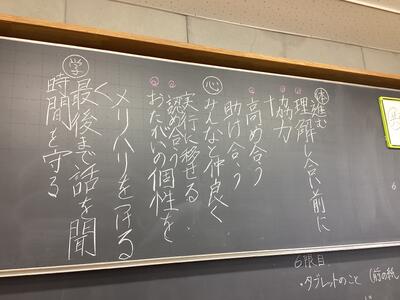 学
時間を守る
最後まで話を聞
く
メリハリをつける
おたがいの個性を
認め合う
実行に移せる
心
みんなと仲良く
助け合う
高め合う
協力
理解し合い前に
進む
6限目
・タブレットのこと (前の紙